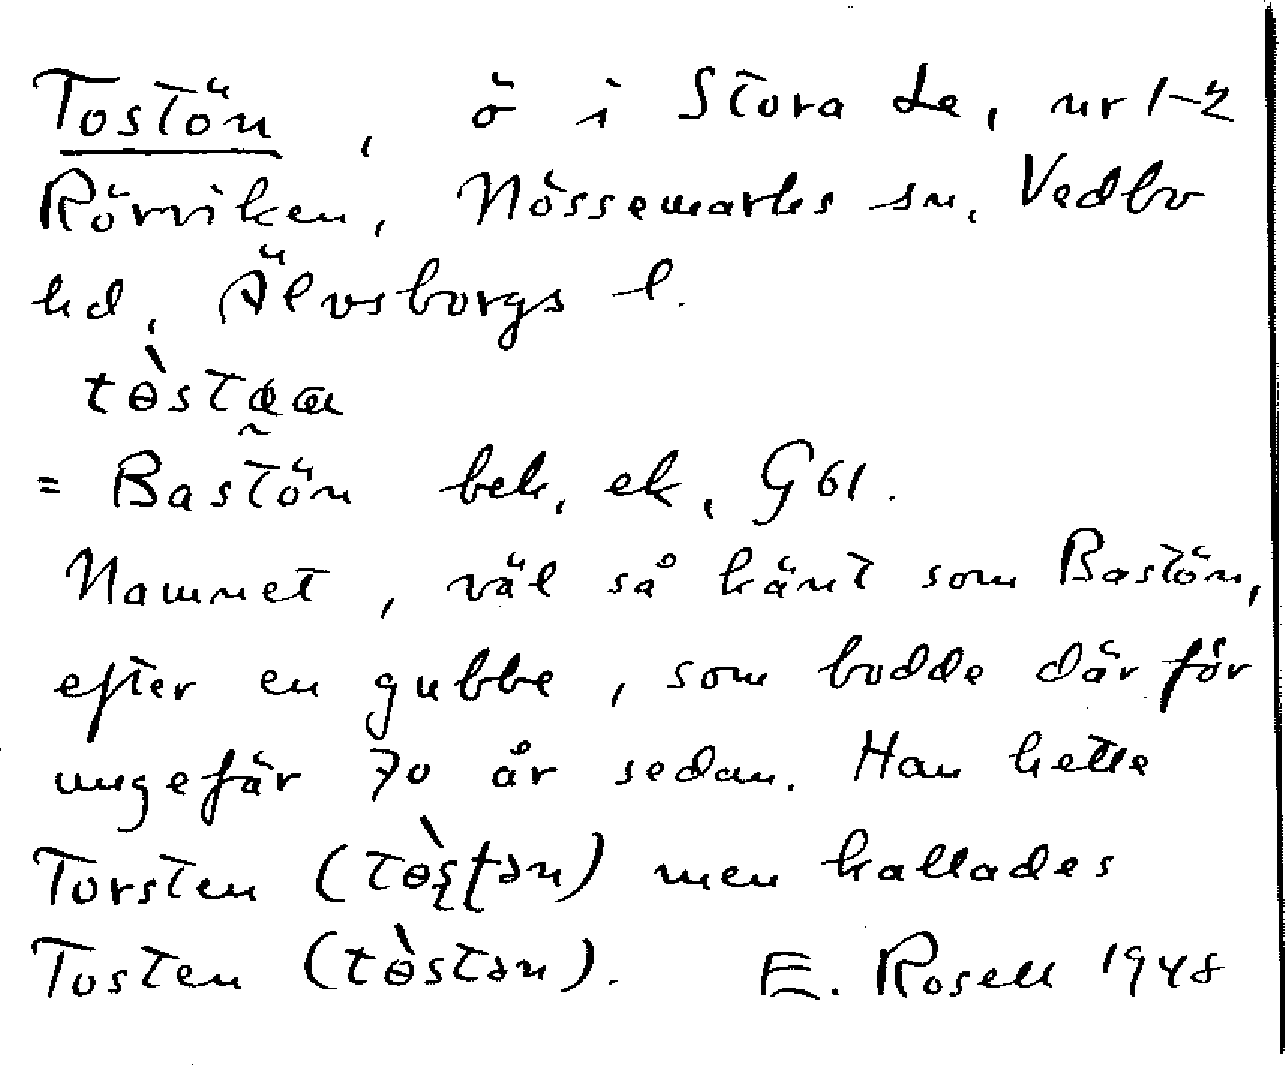 Tostön, ö i Stora Le, nr 1-2
Rörviken, Nössemarks sn, Vedbo
hd, Älvsborgs l.
= Bastön bek, ek, G 61.
Namnet, väl så känt som Bastön,
efter en gubbe, som bodde där för
ungefär 70 år sedan. Han hette
Torsten (tɵ̀ʂʈən) men kallades
Tosten (tɵ̀stən). E. Rosell 1948